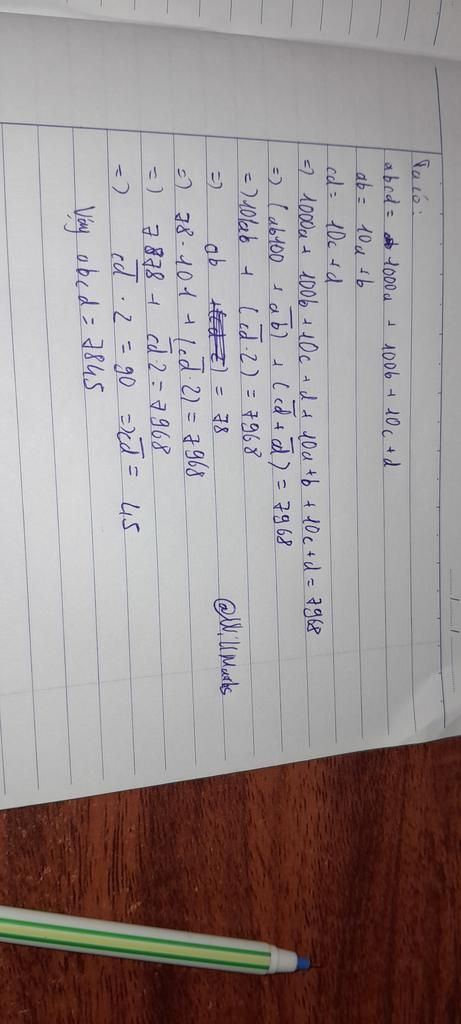 Ta có:
abcd = 1000a + 100b + 10c + d
ab = 10a + b
cd = 10c + d
=) 1000a + 100b + 10c + d + 10a + b + 10c + d = 7968
=) (ab100 + ab) + (cd + d) = 7968
=) 101ab + (cd · 2) = 7968
=) ab = 78
@WillMarbs
=) 78 · 101 + (cd · 2) = 7968
=) 7878 + cd · 2 = 7968
=) cd · 2 = 90 =) cd = 45
Vậy abcd = 7845